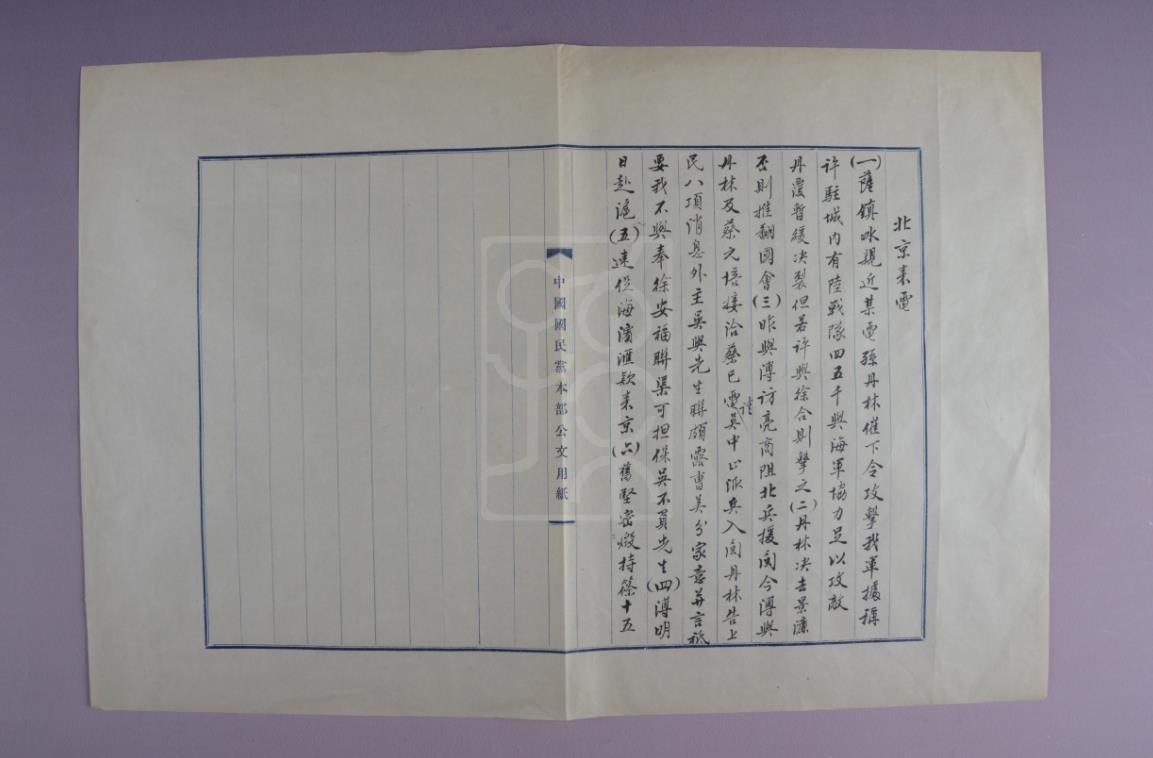 北京來電
(一)薩鎮冰親近某電孫丹林催下令攻擊我軍據稱
許駐城内有陸戰隊四五千與海軍協力足以攻敵
丹漫暫緩决裂但若許與徐合則擊之(二)丹林决去景濂
否則推翻國會(三)昨與溥訪亮商阻北兵援閩今溥與
丹林及蔡元培接洽蔡已電請吳中止派兵入閩丹林告上
民八項消息外主吳與先生聯頗露曹吳分家意并言祇
要我不與奉徐安福聯渠可担保吳不負先生(四)溥明
日赴滬(五)速促海濱滙款來京(六)舊堅密燬持篠十五
中國國民黨本部公文用紙